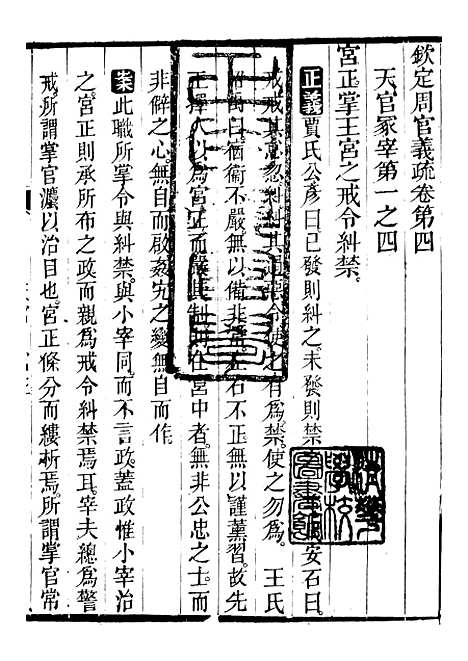 欽定周官義疏卷第四
天官冢宰第一之四
宮正掌王宮之戒令糾禁
正義賈氏公彥曰已發則糾之未發則禁
安石曰
戒戒其怠忽糾糾其
令使之有為禁使之勿為 王氏
曰宿衞不嚴無以備非常左右不正無以謹薰習故先
王擇人以為宮正而嚴其制則在宮中者無非公忠之士而
非僻之心無自而啟姦宄之變無自而作
案此職所掌令與糾禁與小宰同而不言政蓋政惟小宰治
之宮正則承所布之政而親為戒令糾禁焉耳宰夫總為警
戒所謂掌官灋以治目也宮正條分而縷析焉所謂掌官常
清華學校圖書館